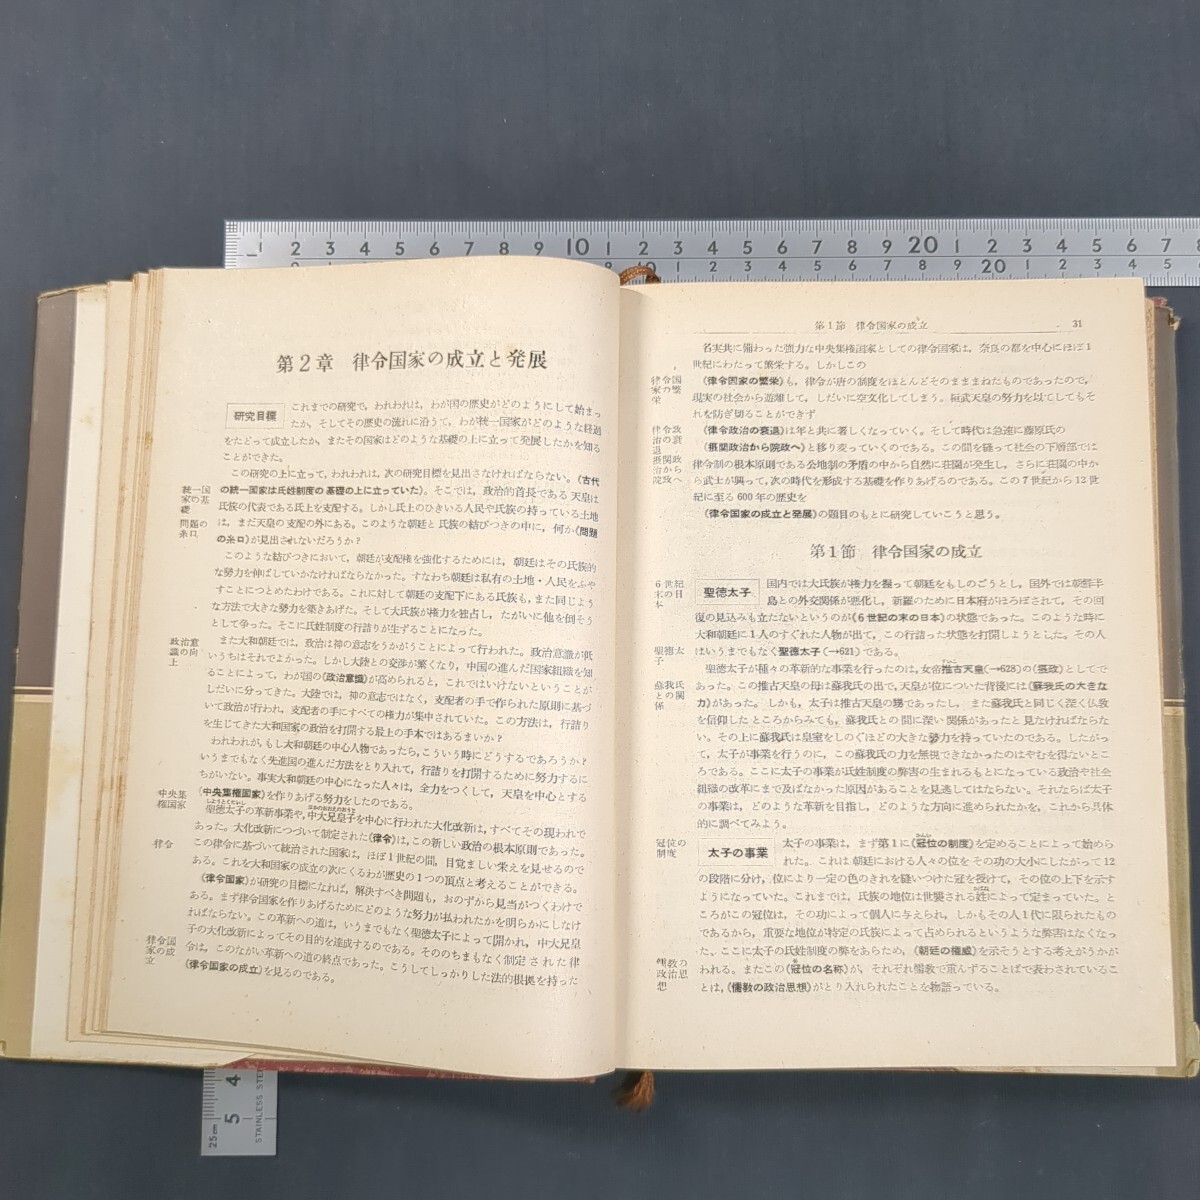 第2章 律令国家の成立と発展
研究目標
これまでの研究で，われわれは，わが国の歴史がどのようにして始まっ
たか，そしてその歴史の流れに沿うて，わが統一国家がどのような経過
をたどって成立したか，またその国家はどのような基礎の上に立って発展したかを知る
ことができた。
この研究の上に立って，われわれは，次の研究目標を見出さなければならない。(古代
統一国家の基礎
の統一国家は氏姓制度の基礎の上に立っていた)。そこでは，政治的首長である天皇は
氏族の代表である氏上を支配する。しかし氏上のひきいる人民や氏族の持っている土地
問題の糸口
は，まだ天皇の支配の外にある。このような朝廷と氏族の結びつきの中に，何か(問題
の糸口)が見出されないだろうか？
このような結びつきにおいて，朝廷が支配権を強化するためには，朝廷はその氏族的
な勢力を伸ばしていかなければならなかった。すなわち朝廷は私有の土地・人民をふや
すことにつとめたわけである。これに対して朝廷の支配下にある氏族も，また同じよう
な方法で大きな勢力を築きあげた。そして大氏族が権力を独占し，たがいに他を倒そう
として争った。そこに氏姓制度の行詰りが生ずることになった。
政治意識の向上
また大和朝廷では，政治は神の意志をうかがうことによって行われた。政治意識が低
いうちはそれでよかった。しかし大陸との交渉が繁くなり，中国の進んだ国家組織を知
ることによって，わが国の(政治意識)が高められると，これではいけないということが
しだいに分ってきた。大陸では，神の意志ではなく，支配者の手で作られた原則に基づ
いて政治が行われ，支配者の手にすべての権力が集中されていた。この方法は，行詰り
を生じてきた大和国家の政治を打開する最上の手本ではあるまいか？
われわれが，もし大和朝廷の中心人物であったら，こういう時にどうするであろうか？
いうまでもなく先進国の進んだ方法をとり入れて，行詰りを打開するために努力するに
ちがいない。事実大和朝廷の中心になった人々は，全力をつくして，天皇を中心とする
中央集権国家
(中央集権国家)を作りあげる努力をしたのである。
聖徳太子の革新事業や，中大兄皇子を中心に行われた大化改新は，すべてその現われで
あった。大化改新につづいて制定された(律令)は，この新しい政治の根本原則であった。
律令
この律令に基づいて統治された国家は，ほぼ1世紀の間，目覚ましい栄えを見せるので
ある。これを大和国家の成立の次にくるわが歴史の1つの頂点と考えることができる。
(律令国家)が研究の目標になれば，解決すべき問題も，おのずから見当がつくわけで
ある。まず律令国家を作りあげるためにどのような努力が払われたかを明らかにしなけ
ればならない。この革新への道は，いうまでもなく聖徳太子によって開かれ，中大兄皇
子の大化改新によってその目的を達成するのである。そののちまもなく制定された律
律令国家の成立
令は，このながい革新への道の終点であった。こうしてしっかりした法的根拠を持った
(律令国家の成立)を見るのである。
第1節 律令国家の成立 31
名実共に備わった強力な中央集権国家としての律令国家は，奈良の都を中心にほぼ1
世紀にわたって繁栄する。しかしこの
律令国家の繁栄
(律令国家の繁栄)も，律令が唐の制度をほとんどそのまままねたものであったので，
現実の社会から遊離して，しだいに空文化してしまう。桓武天皇の努力を以てしてもそ
れを防ぎ切ることができず
律令政治の衰退
(律令政治の衰退)は年と共に著しくなっていく。そして時代は急速に藤原氏の
摂関政治から院政へ
(摂関政治から院政へ)と移り変っていくのである。この間を縫って社会の下層部では
律令制の根本原則である公地制の矛盾の中から自然に荘園が発生し，さらに荘園の中か
ら武士が興って，次の時代を形成する基礎を作りあげるのである。この7世紀から12世
紀に至る600年の歴史を
(律令国家の成立と発展)の題目のもとに研究していこうと思う。
第1節 律令国家の成立
6世紀末の日本
聖徳太子
国内では大氏族が権力を振って朝廷をもしのごうとし，国外では朝鮮半
島との外交関係が悪化し，新羅のために日本府がほろぼされて，その回
復の見込みも立たないというのが(6世紀の末の日本)の状態であった。このような時に
大和朝廷に1人のすぐれた人物が出て，この行詰った状態を打開しようとした。その人
聖徳太子
はいうまでもなく聖徳太子(→621)である。
聖徳太子が種々の革新的な事業を行ったのは，女帝推古天皇(→628)の(摂政)としてで
蘇我氏との関係
あった。この推古天皇の母は蘇我氏の出で，天皇が位についた背後には(蘇我氏の大きな
力)があった。しかも，太子は推古天皇の甥であったし，また蘇我氏と同じく深く仏教
を信仰したところからみても，蘇我氏との間に深い関係があったと見なければならな
い。その上に蘇我氏は皇室をしのぐほどの大きな勢力を持っていたのである。したがっ
て，太子が事業を行うのに，この蘇我氏の力を無視できなかったのはやむを得ないとこ
ろである。ここに太子の事業が氏姓制度の弊害の生まれるもとになっている政治や社会
組織の改革にまで及ばなかった原因があることを見逃してはならない。それならば太子
の事業は，どのような革新を目指し，どのような方向に進められたかを，これから具体
的に調べてみよう。
冠位の制度
太子の事業
太子の事業は，まず第1に(冠位の制度)を定めることによって始めら
れた。これは朝廷における人々の位をその功の大小にしたがって12
の段階に分け，位により一定の色のきれを縫いつけた冠を授けて，その位の上下を示す
ようになっていた。これまでは，氏族の地位は世襲される姓によって定まっていた。と
ころがこの冠位は，その功によって個人に与えられ，しかもその人1代に限られたもの
であるから，重要な地位が特定の氏族によって占められるというような弊害はなくなっ
た。ここに太子の氏姓制度の弊をあらため，(朝廷の権威)を示そうとする考えがうかが
儒教の政治思想
われる。またこの(冠位の名称)が，それぞれ儒教で重んずることばで表わされているこ
とは，(儒教の政治思想)がとり入れられたことを物語っている。
1 2 3 4 5 6 7 8 9 10 1 2 3 4 5 6 7 8 9 20 1 2 3 4 5 6 7 8
4
5
25cm
STAINLESS STE